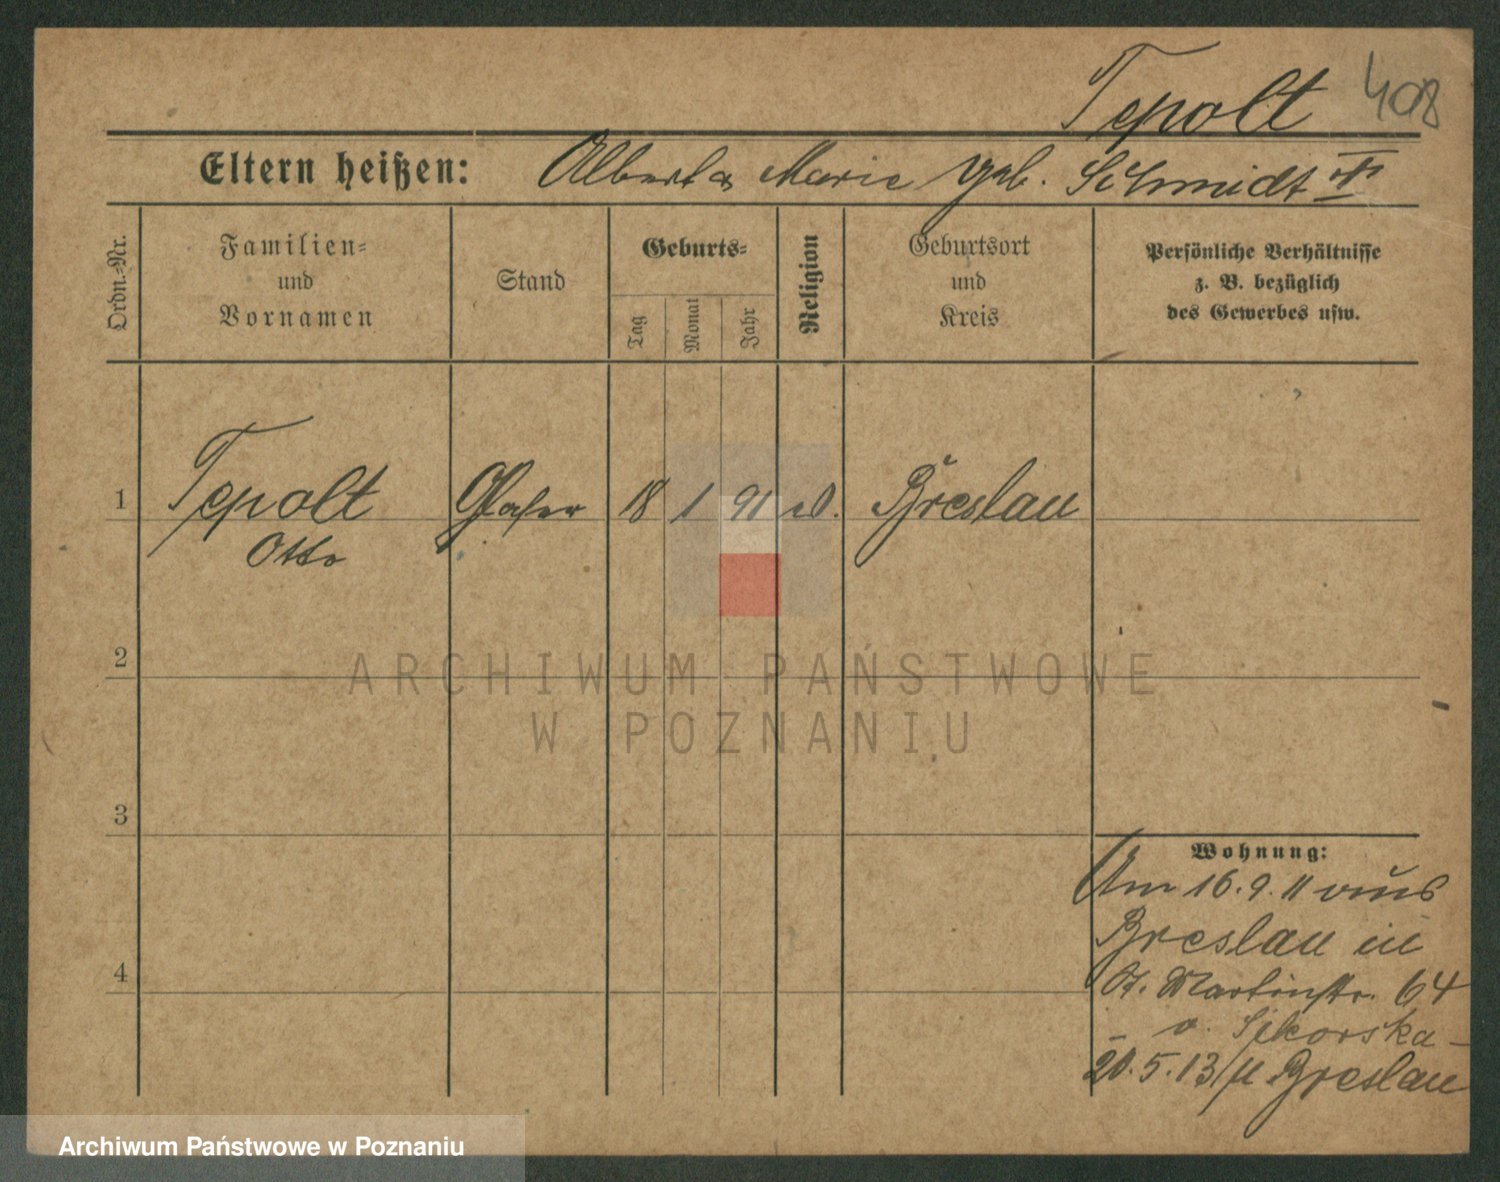 Tepolt 408
Eltern heißen: Albert & Marie geb. Schmidt
Ordn.-Nr.
Familien-
und
Vornamen
Stand
Geburts-
Tag
Monat
Jahr
Religion
Geburtsort
und
Kreis
Persönliche Verhältnisse
z. B. bezüglich
des Gewerbes usw.
1 Tepolt Glaser 18 1 91 Breslau
Otto
2
3
4
Wohnung:
Am 16.9.11 aus
Breslau in
St. Martinstr. 64
v. Sikorska
20.5.13 Breslau
ARCHIWUM PAŃSTWOWE
W POZNANIU
Archiwum Państwowe w Poznaniu